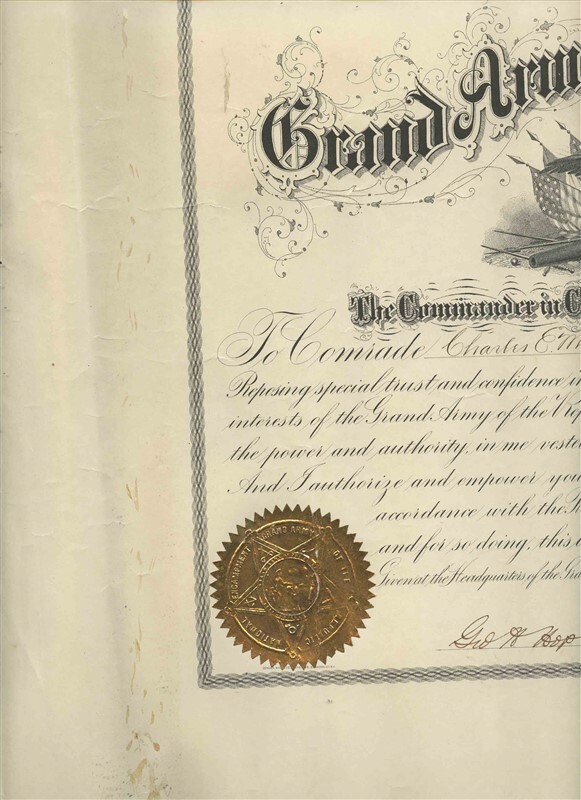 Grand Arm
The Commander in C
To Comrade Charles E. M
Reposing special trust and confidence i
interests of the Grand Army of the Rep
the power and authority, in me veste
And I authorize and empower you
accordance with the
and for so doing, this
Given at the Headquarters of the Gra
GRAND ARMY OF THE REPUBLIC
NATIONAL ENCAMPMENT
Geo H Hop